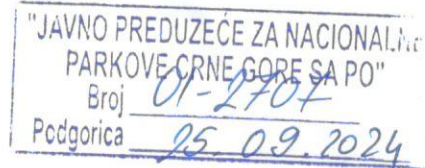 "JAVNO PREDUZEĆE ZA NACIONALNE
PARKOVE CRNE GORE SA PO"
Broj 01-2707
Podgorica 25.09.2024